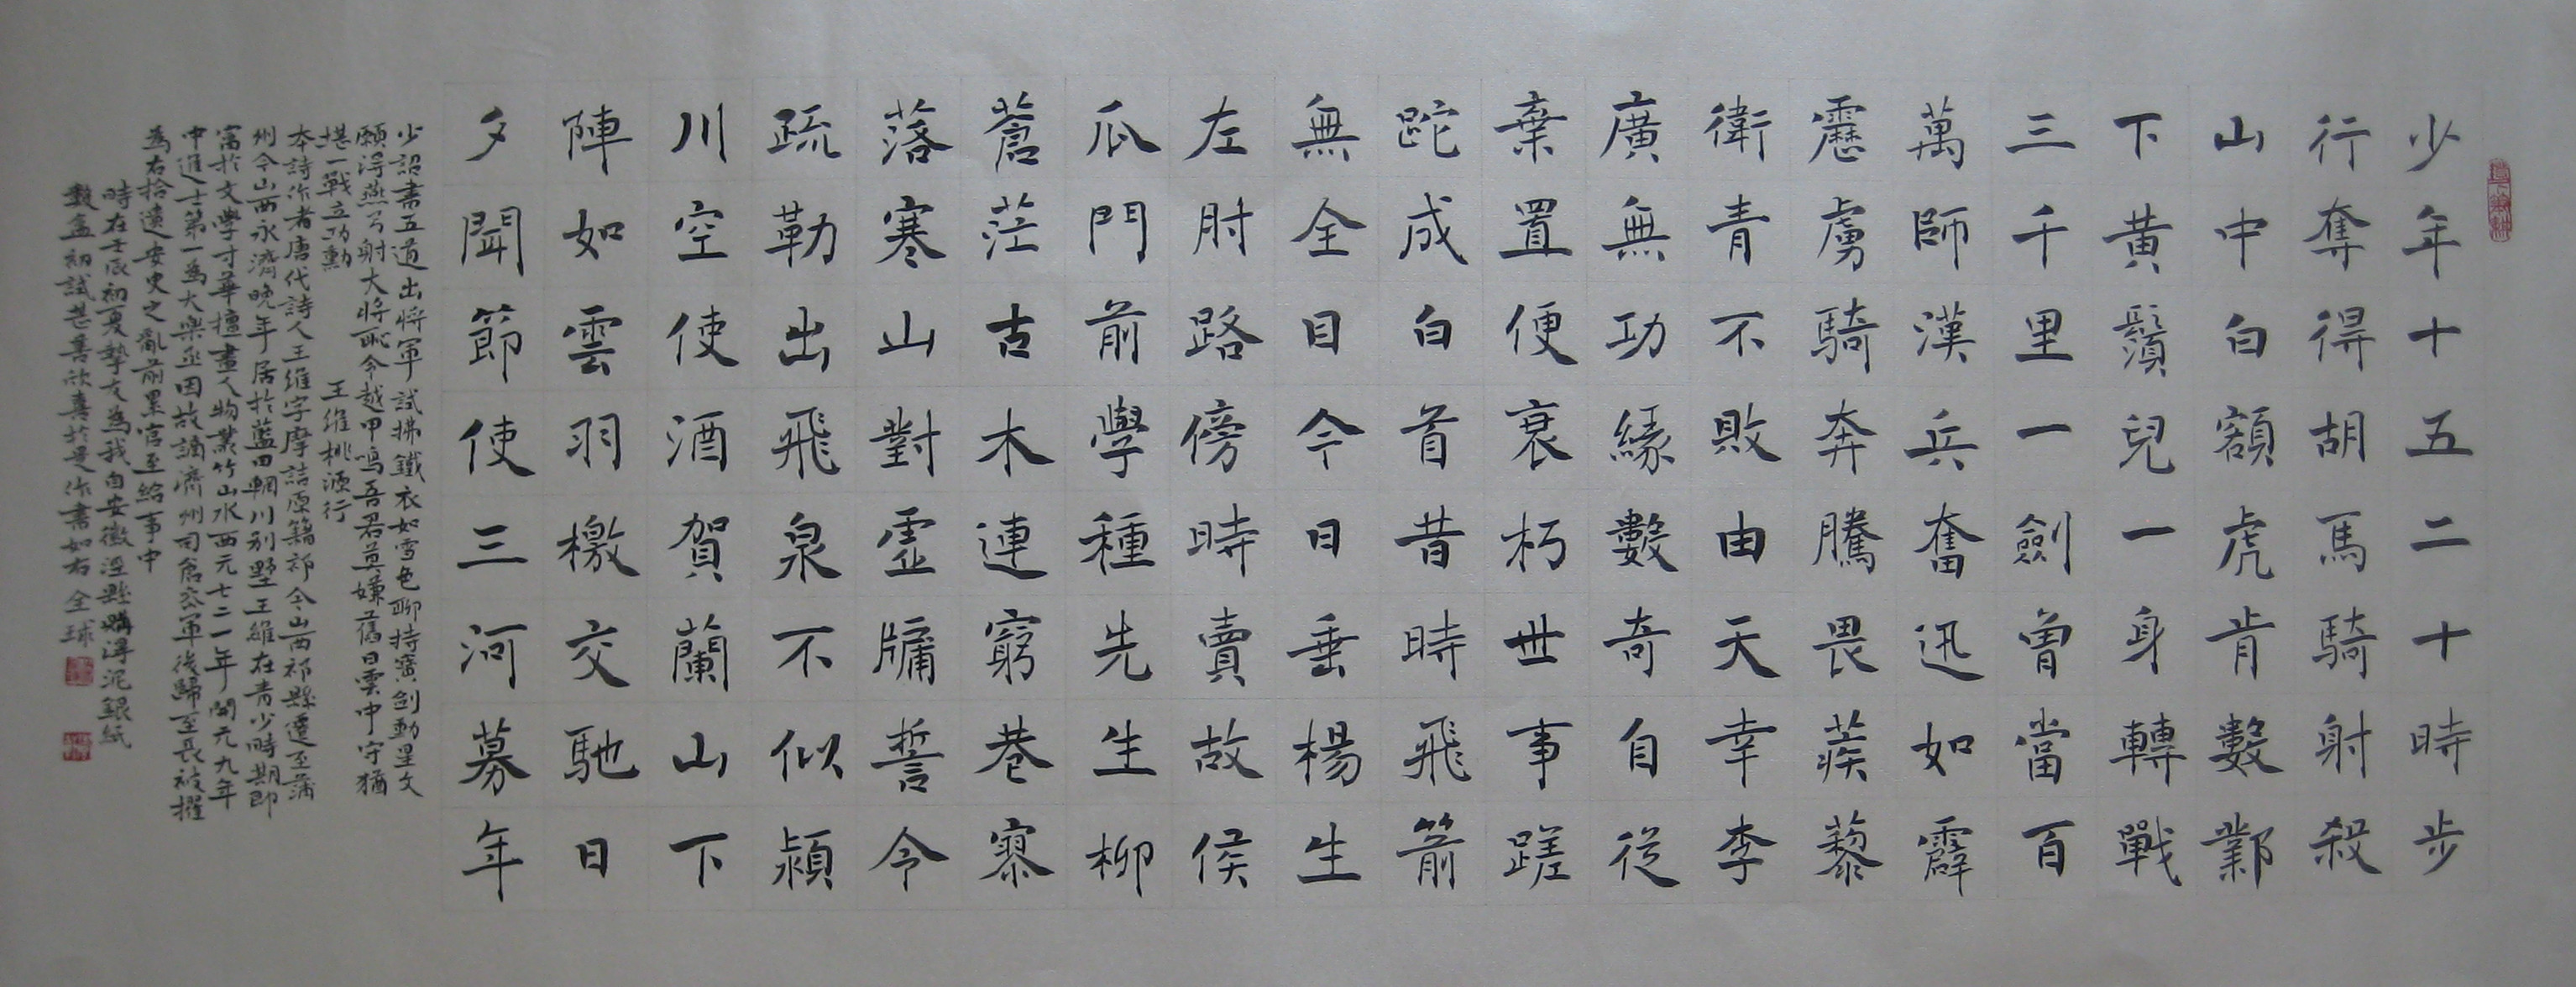 少年十五二十時步
行奪得胡馬騎射殺
山中白額虎肯數鄴
下黃鬚兒一身轉戰
三千里一劍曾當百
萬師漢兵奮迅如霹
靂虜騎奔騰畏蒺藜
衛青不敗由天幸李
廣無功緣數奇自從
棄置便衰朽世事蹉
跎成白首昔時飛箭
無全目今日垂楊生
左肘路傍時賣故侯
瓜門前學種先生柳
蒼茫古木連窮巷寥
落寒山對虛牖誓令
疏勒出飛泉不似潁
川空使酒賀蘭山下
陣如雲羽檄交馳日
夕聞節使三河募年
少詔書五道出將軍試拂鐵衣如雪色聊持寶劍動星文
願得燕弓射大將恥令越甲鳴吾君莫嫌舊日雲中守猶
堪一戰立功勳 王維桃源行
本詩作者唐代詩人王維字摩詰原籍祁今山西祁縣遷至蒲
州今山西永濟晚年居於藍田輞川別墅王維在青少時期即
富於文學才華擅畫人物叢竹山水西元七二一年開元九年
中進士第一為大樂丞因故謫濟州司倉參軍後歸至長被擢
為右拾遺安史之亂前累官至給事中
時在壬辰初夏摯友為我自安徽涇縣購得泥銀紙
數盒初試甚善欣喜於是作書如右 全球